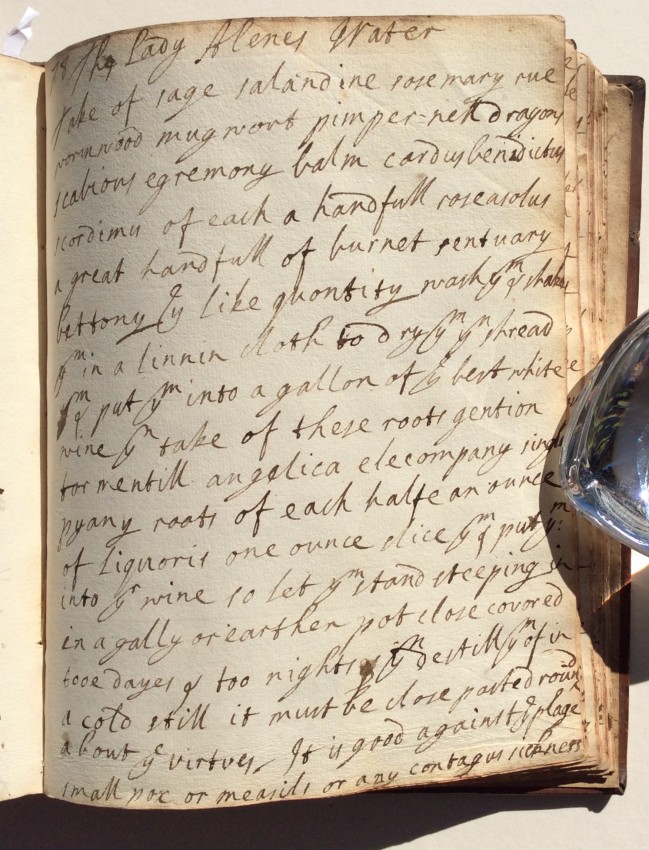 78 The Lady Alenes Water
Take of sage salandine rosemary rue
wormwood mugwort pimper-nell dragons
scabious egremony balm cardusbenidictus
scordimus of each a handfull roseasolus
a great handfull of burnet sentuary
bettony ye like quontity wash ym & shake
ym in a linnin cloth to dry ym yn shread
ym & put ym into a gallon of ye best white
wine yn take of these roots gention
tormentill angelica elecompany
pyany roots of each halfe an ounce
of liquoris one ounce slice ym & put ym
into ye wine so let ym stand steeping in
in a gally or earthen pot close covered
tooe dayes & too nights yn destill ym of in
a cold still it must be close pasted round
about ye virtues It is good against ye plage
small pox or measils or any contagus sickness